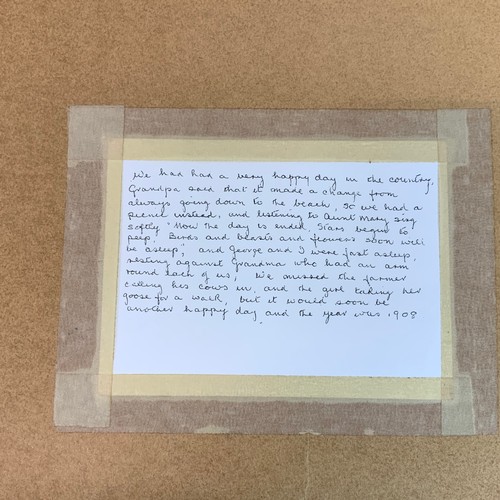 We had had a very happy day in the country,
Grandpa said that it made a change from
always going down to the beach, So we had a
picnic instead, and listening to Aunt Mary sing
softly "Now the day is ended, Stars begin to
peep, Birds and beasts and flowers soon will
be asleep", and George and I were fast asleep,
resting against Grandma who had an arm
round each of us, We missed the farmer
calling his cows in, and the girl taking her
goose for a walk, but it would soon be
another happy day and the year was 1908